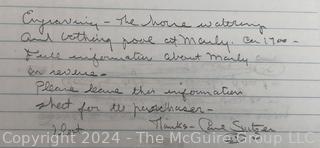 Engraving - The horse watering
and bathing pool at Marly. Ca 1700 -
Full information about Marly
on reverse -
Please leave this information
sheet for the purchaser -
Thanks -
Copyright 2024 - GrandOldEstates.com